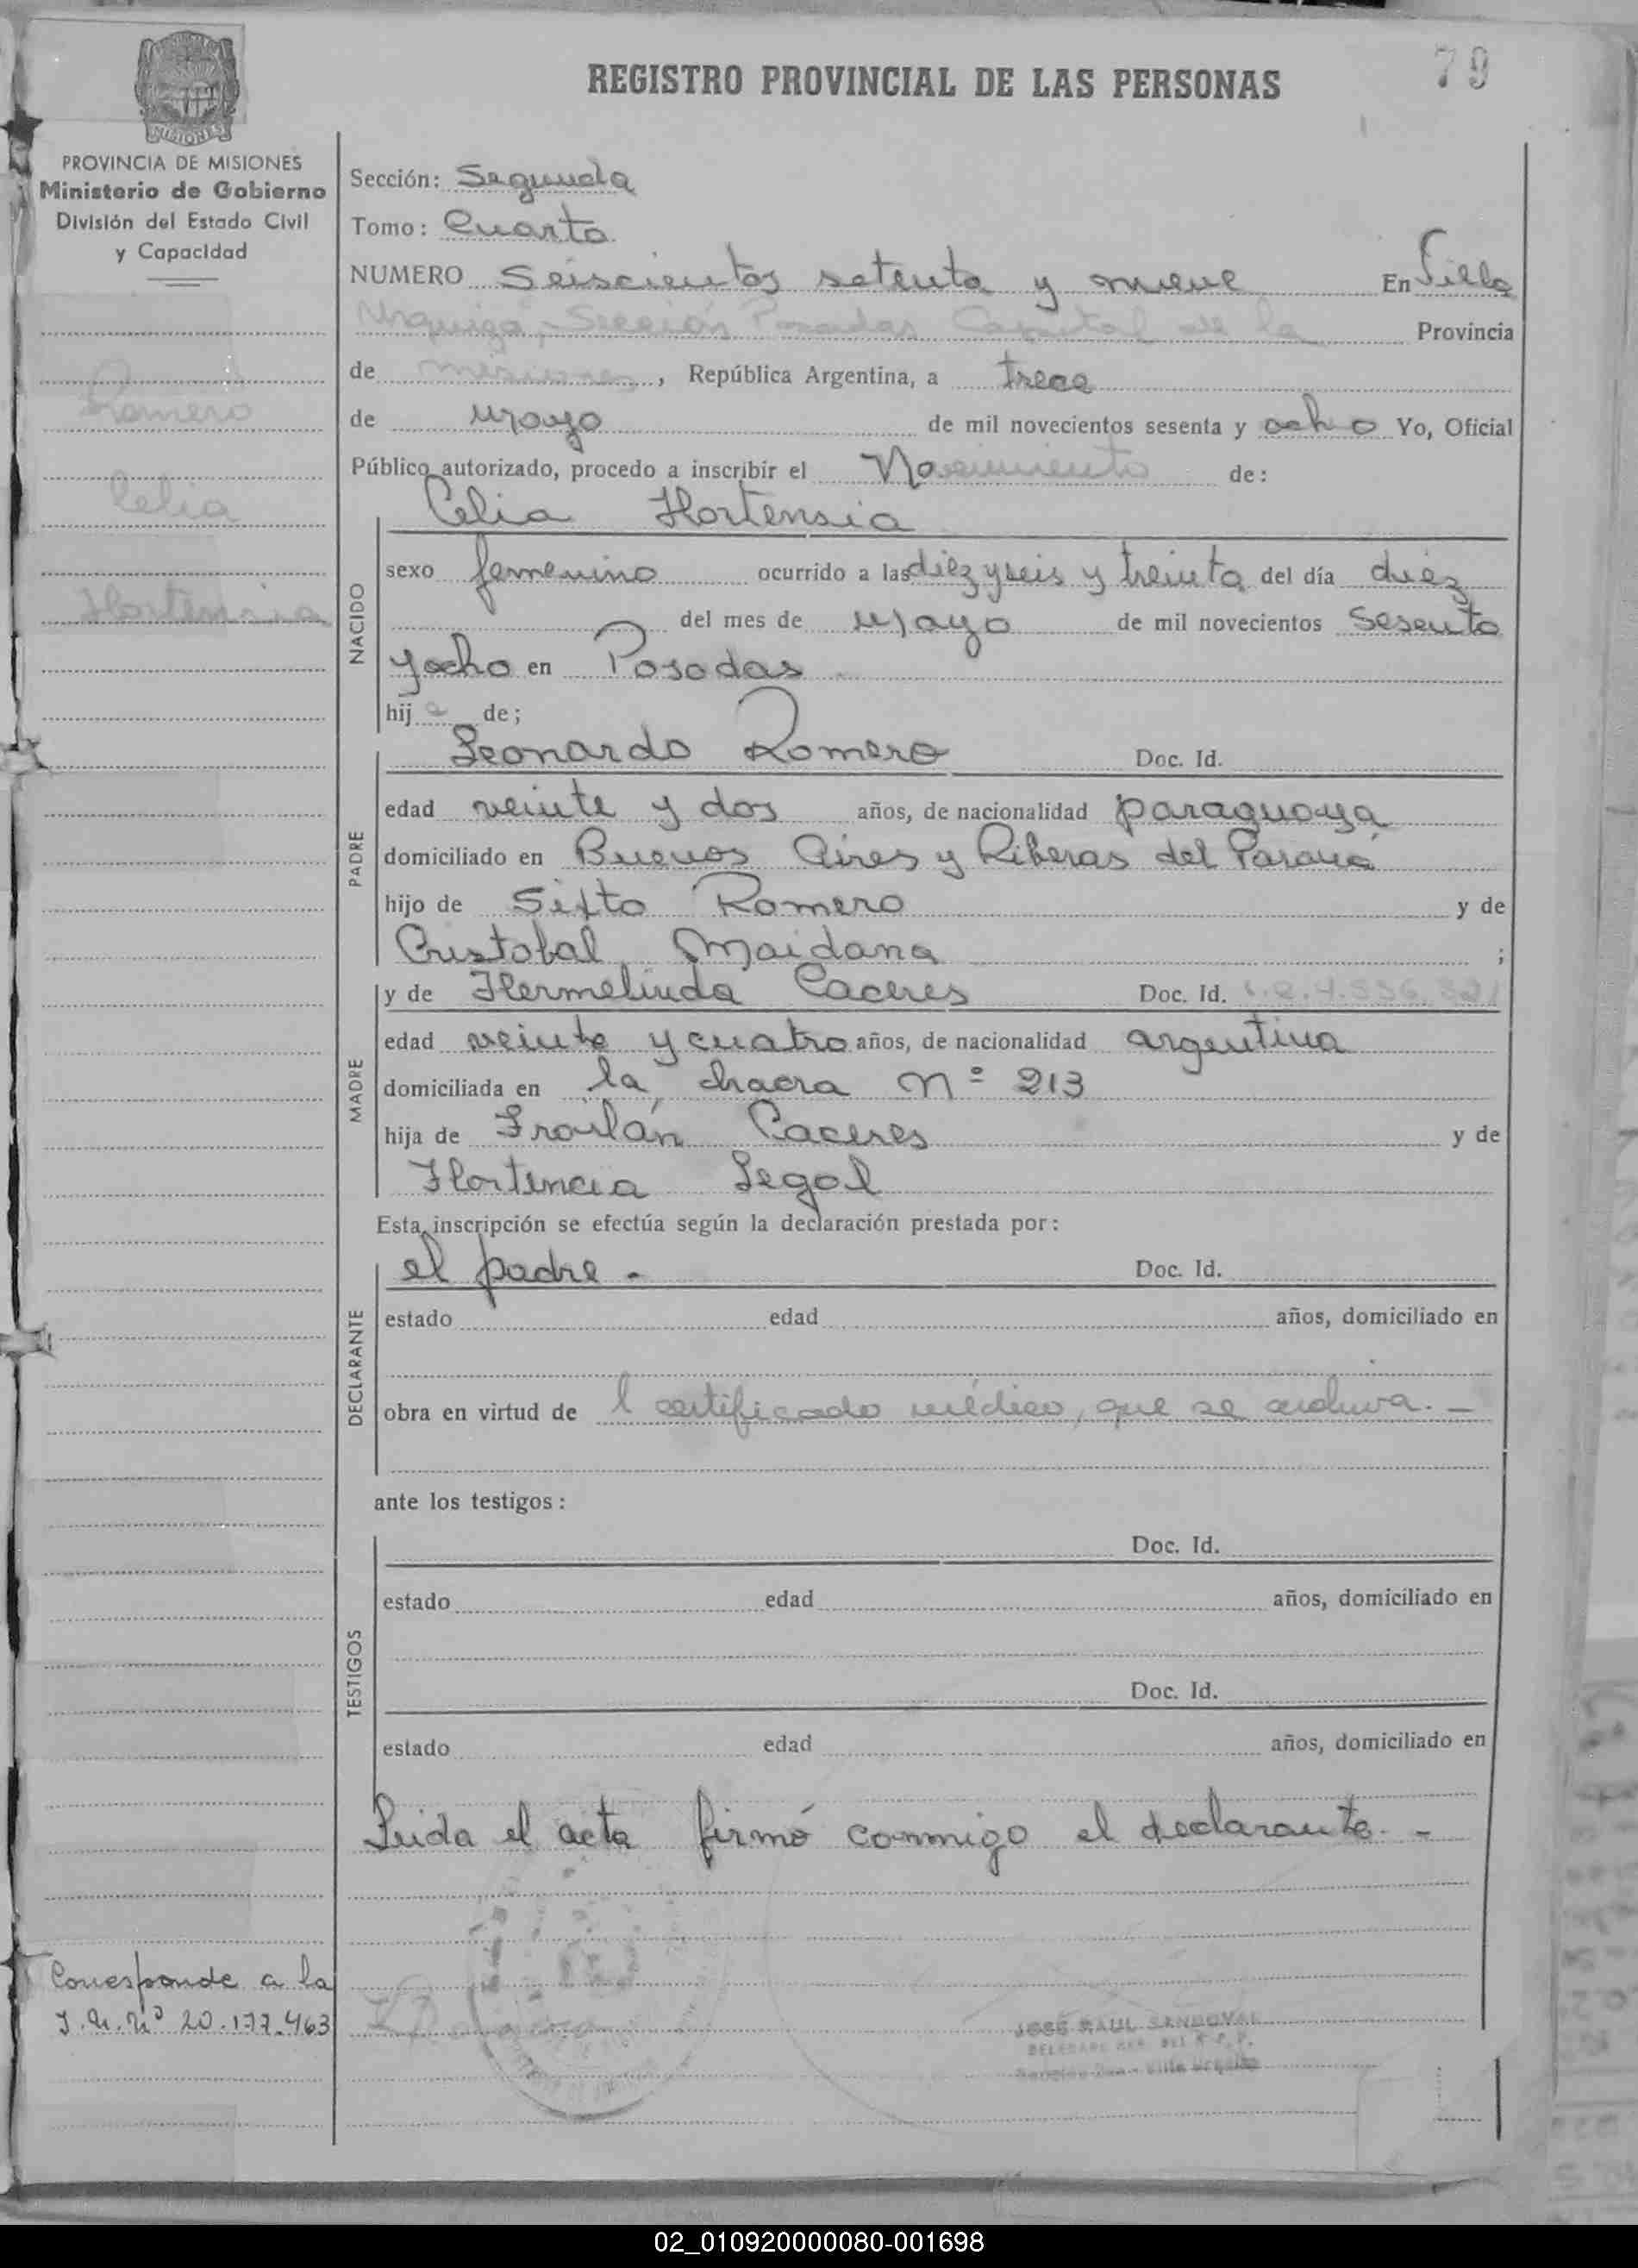 79
REGISTRO PROVINCIAL DE LAS PERSONAS
MISIONES
PROVINCIA DE MISIONES
Ministerio de Gobierno
División del Estado Civil
y Capacidad
Romero
Celia
Hortensia
Sección: Segunda
Tomo: Cuarto
NUMERO Seiscientos setenta y nueve En Villa
Urquiza, Sección Posadas Capital de la Provincia
de Misiones, República Argentina, a trece
de Mayo de mil novecientos sesenta y ocho Yo, Oficial
Público autorizado, procedo a inscribir el Nacimiento de:
Celia Hortensia
NACIDO
sexo femenino ocurrido a las diez y seis y treinta del día diez
del mes de Mayo de mil novecientos sesenta
y ocho en Posadas
hij a de;
Leonardo Romero Doc. Id.
PADRE
edad veinte y dos años, de nacionalidad paraguaya
domiciliado en Buenos Aires y Riberas del Paraná
hijo de Sixto Romero y de
Cristobal Maidana ;
y de Hermelinda Caceres Doc. Id.
MADRE
edad veinte y cuatro años, de nacionalidad argentina
domiciliada en la chacra Nº 213
hija de Froilán Caceres y de
Hortencia Segal
Esta inscripción se efectúa según la declaración prestada por:
el padre. Doc. Id.
DECLARANTE
estado edad años, domiciliado en
obra en virtud de l certificado médico, que se archiva. -
ante los testigos:
Doc. Id.
TESTIGOS
estado edad años, domiciliado en
Doc. Id.
estado edad años, domiciliado en
Leida el acta firmó conmigo el declarante. -
Corresponde a la
20.177.463
JOSE RAUL SANDOVAL
02_010920000080-001698